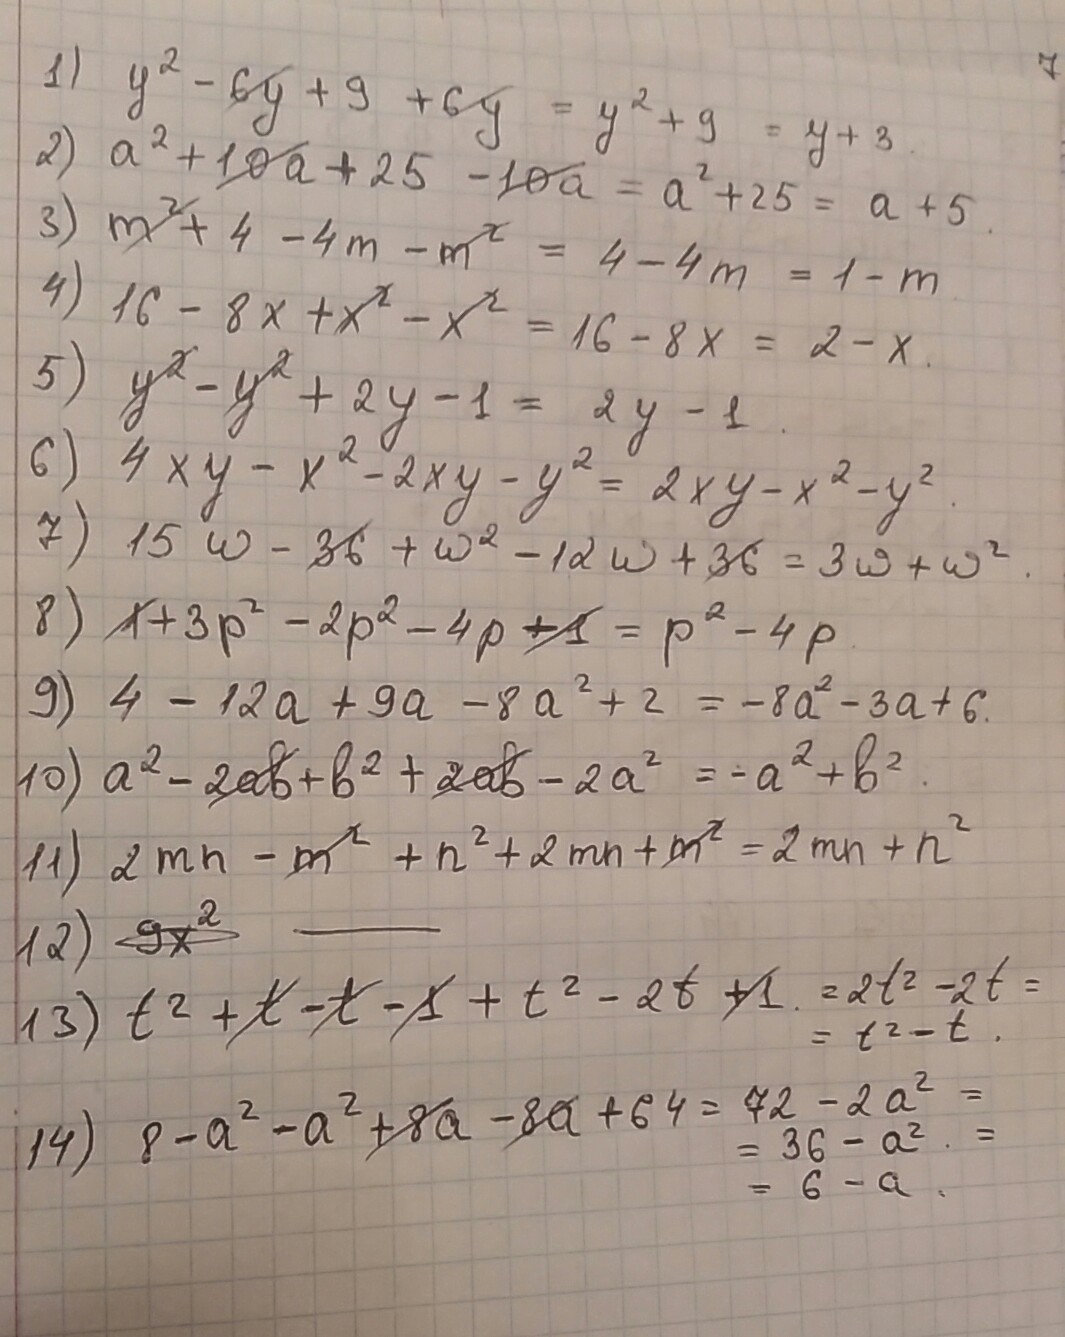 7
1) y² - 6y + 9 + 6y = y² + 9 = y + 3.
2) a² + 10a + 25 - 10a = a² + 25 = a + 5.
3) m² + 4 - 4m - m² = 4 - 4m = 1 - m
4) 16 - 8x + x² - x² = 16 - 8x = 2 - x.
5) y² - y² + 2y - 1 = 2y - 1.
6) 4xy - x² - 2xy - y² = 2xy - x² - y².
7) 15w - 36 + w² - 12w + 36 = 3w + w².
8) 1 + 3p² - 2p² - 4p + 1 = p² - 4p.
9) 4 - 12a + 9a - 8a² + 2 = -8a² - 3a + 6.
10) a² - 2ab + b² + 2ab - 2a² = -a² + b².
11) 2mn - m² + n² + 2mn + m² = 2mn + n²
12) 9x² —
13) t² + t - t - 1 + t² - 2t + 1. = 2t² - 2t =
= t² - t.
14) 8 - a² - a² + 8a - 8a + 64 = 72 - 2a² =
= 36 - a². =
= 6 - a.